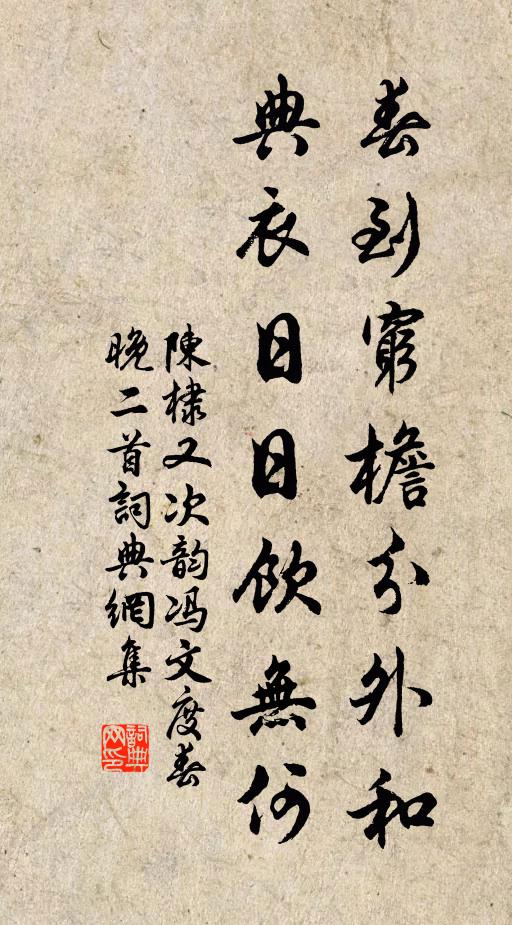 春到窮檐分外和
典衣日日飲無何
陳棣又次韵冯文度春
晚二首詞典網集
詞典
网印